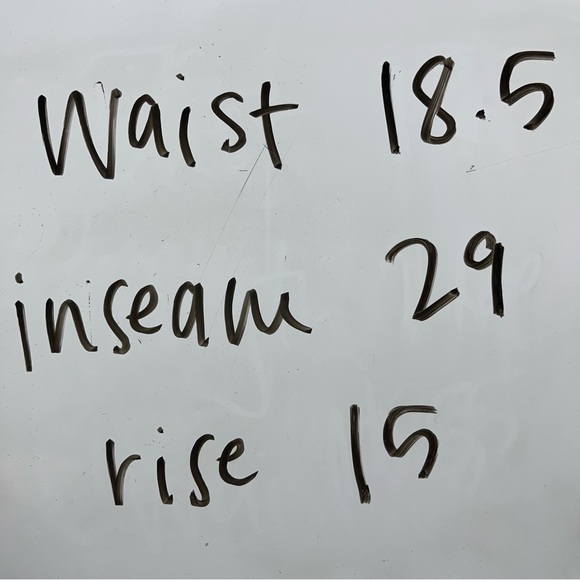 Waist 18.5
inseam 29
rise 15